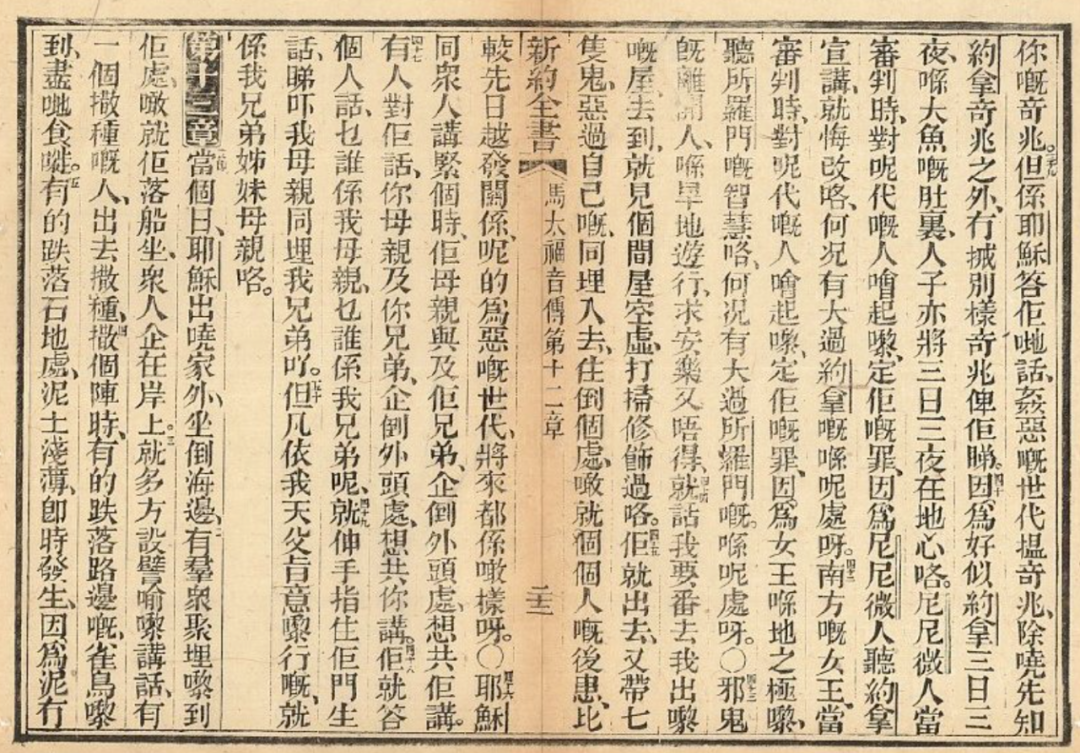 你嘅奇兆。三十九但係耶穌答佢哋話、姦惡嘅世代搵奇兆、除嘵先知
約拿奇兆之外、冇摵別樣奇兆俾佢睇。四十因爲好似約拿三日三
夜、喺大魚嘅肚裏、人子亦將三日三夜在地心咯。尼尼微人當
審判時、對呢代嘅人噲起嚟、定佢嘅罪、因爲尼尼微人聽約拿
宣講、就悔改咯、何況有大過約拿嘅喺呢處呀。四二南方嘅女王、當
審判時、對呢代嘅人噲起嚟、定佢嘅罪、因爲女王喺地之極嚟、
聽所羅門嘅智慧咯、何況有大過所羅門嘅、喺呢處呀。〇四三邪鬼
旣離開人、喺旱地遊行、求安樂又唔得、四四就話我要番去我出嚟
嘅屋、去到、就見個間屋空虛、打掃修飾過咯。四五佢就出去、又帶七
隻鬼、惡過自己嘅、同埋入去、住倒個處、噉就個個人嘅後患、比
新約全書 馬太福音傳第十二章
較先日越發關係、呢的爲惡嘅世代、將來都係噉樣呀。〇四六耶穌
同衆人講緊個時、佢母親與及佢兄弟、企倒外頭處、想共佢講。
四七有人對佢話、你母親及你兄弟、企倒外頭處、想共你講。四十八佢就答
個人話、乜誰係我母親、乜誰係我兄弟呢、四九就伸手指住佢門生
話、睇吓我母親同埋我兄弟吖。五十但凡依我天父旨意嚟行嘅、就
係我兄弟姊妹母親咯。
第十三章 當個日、耶穌出嘵家外、坐倒海邊、二有羣衆聚埋嚟到
佢處、噉就佢落船坐、衆人企在岸上。三就多方設譬喻嚟講話、有
一個撒種嘅人、出去撒種、四撒個陣時、有的跌落路邊嘅、雀鳥嚟
到、盡哋食嘥。五有的跌落石地處、泥土淺薄、卽時發生、因爲泥冇